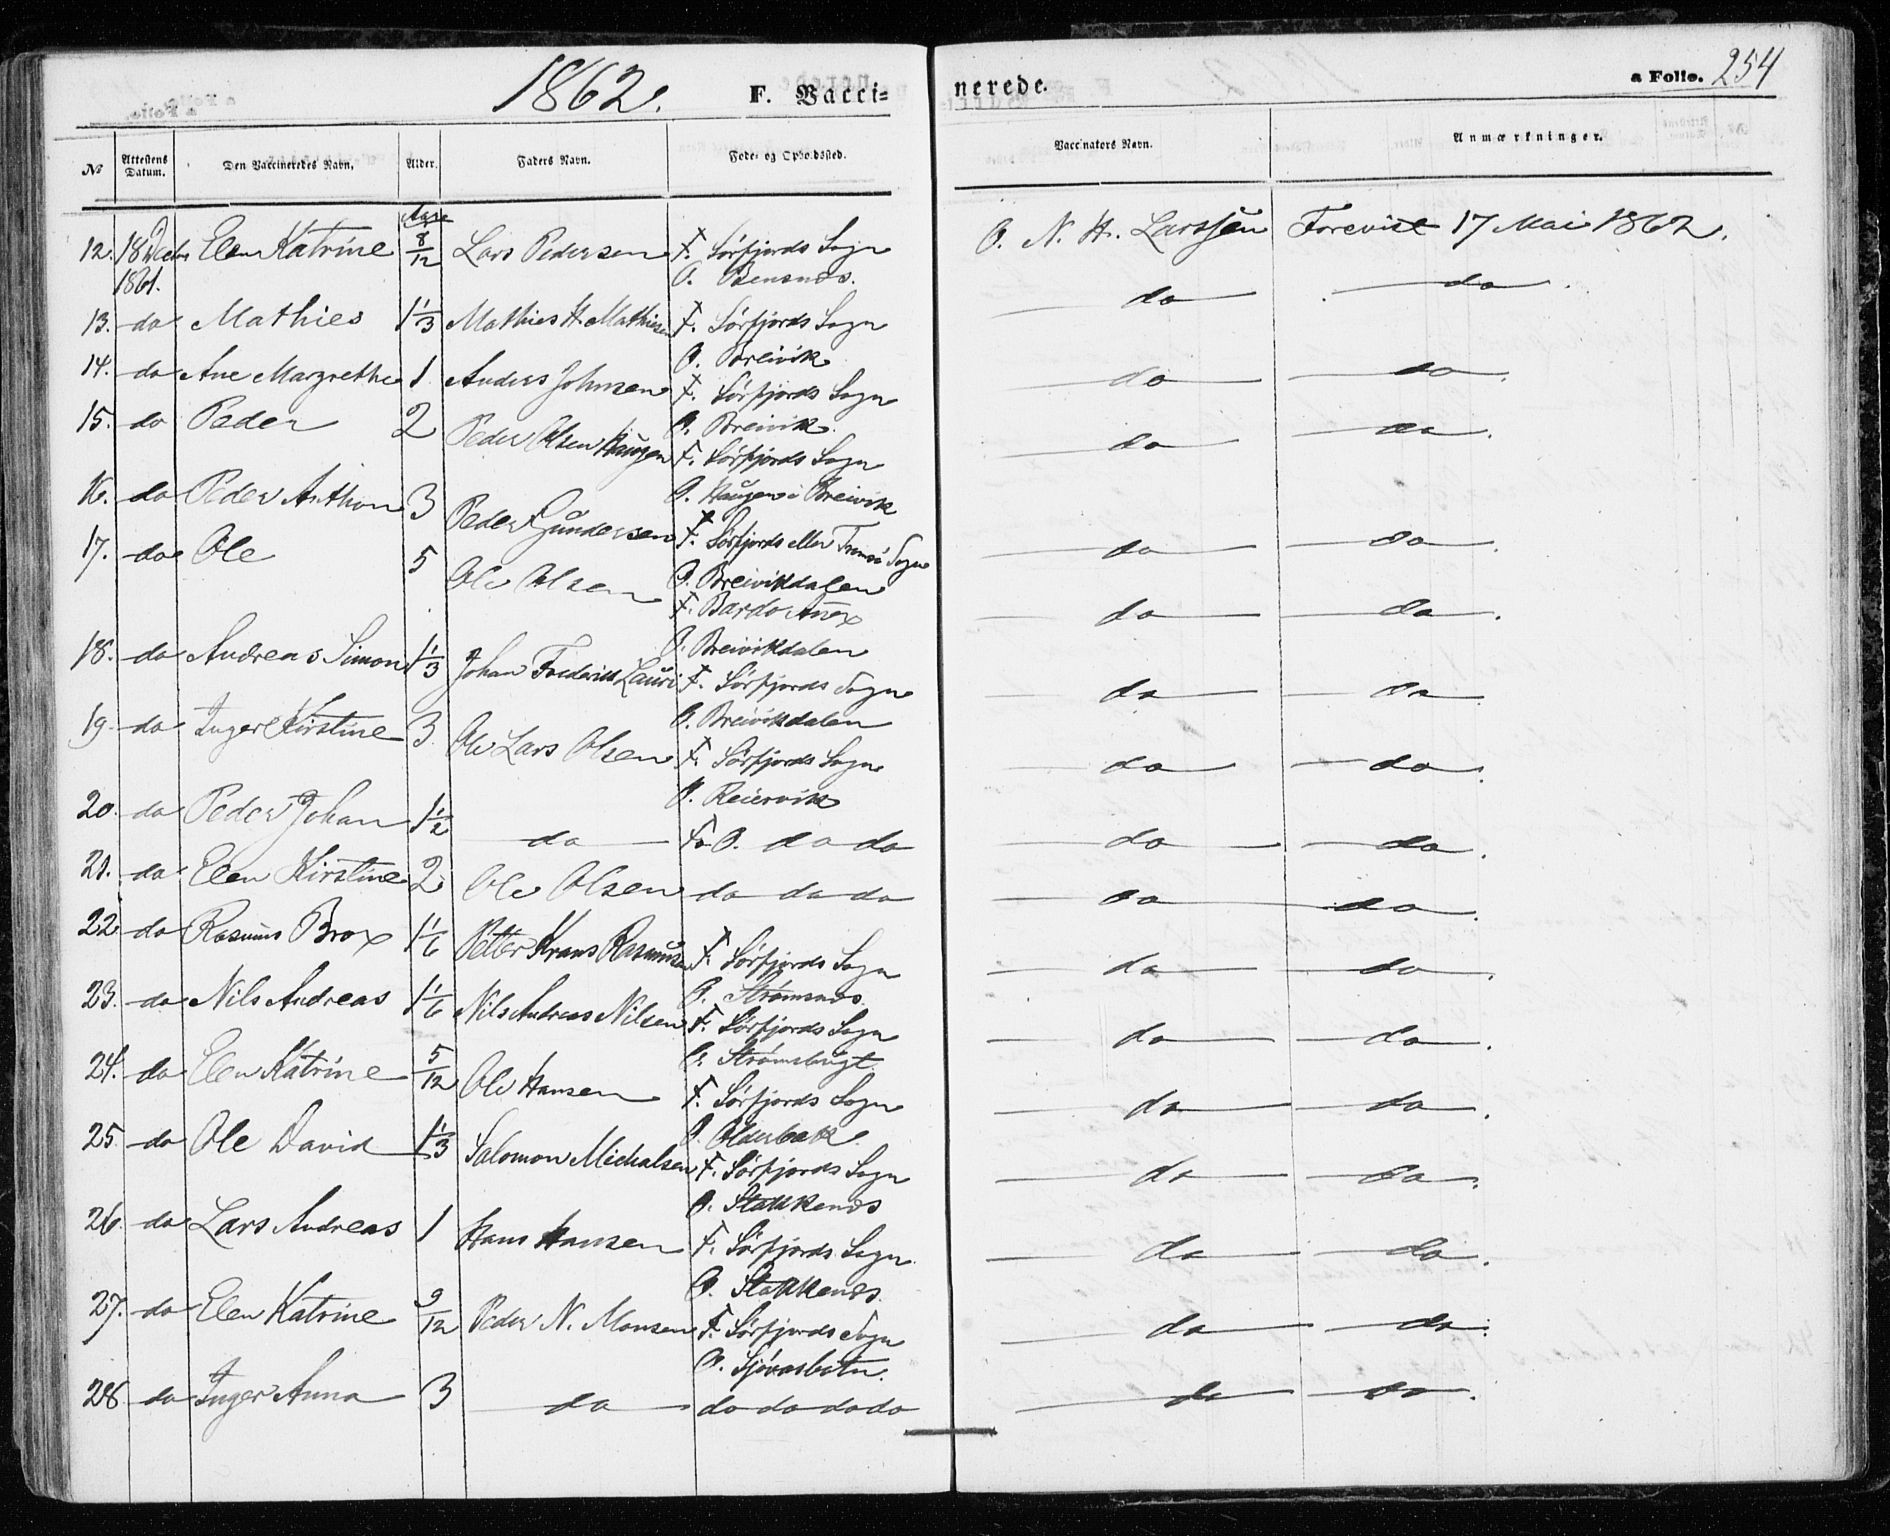 1862. F. Vacci= nerede. a Folio. 254
No Attestens Datum. Den Vaccineredes Navn. Alder. Faders Navn. Føde= og Opholdssted. Vaccinators Navn. Anmærkninger.
Aar
12. 18 Decbr 1861. Elen Katrine 8/12 Lars Pedersen F. Sörfjords Sogn O. N. H. Larssen Forevist 17 Mai 1862.
O. Bensnes.
13. do Mathies 1 1/3 Mathies H. Mathiesen F. Sörfjords Sogn do do.
O. Breivik
14. do Ane Margrethe 1 Anders Johnsen F. Sörfjords Sogn do do.
O. Breivik.
15. do Peder 2 Peder Olsen Haugen F. Sörfjords Sogn do do.
O. Haugen i Breivik
16. do Peder Anthon 3 Peder Gundersen F. Sörfjords eller Tromsö Sogn do do.
O. Breivikdalen
17. do Ole 5 Ole Olsen F. Bardo Anex do do.
O. Breivikdalen
18. do Andreas Simon 1 1/3 Johan Frederik Lauri F. Sörfjords Sogn do do.
O. Breivikdalen
19. do Inger Kirstine 3 Ole Lars Olsen F. Sörfjords Sogn do do.
O. Reiervik
20. do Peder Johan 1 1/2 do F. O. do do do do.
21. do Elen Kirstine 2 Ole Olsen do do do do do.
22. do Rasmus Brox 1 1/6 Petter Krans Rasmusen F. Sörfjords Sogn do do.
O. Strømsnes.
23. do Nils Andreas 1 1/6 Nils Andreas Nilsen F. Sörfjords Sogn do do.
O. Strømsbugt.
24. do Elen Katrine 5/12 Ole Hansen F. Sörfjords Sogn do do.
O. Olderbak.
25. do Ole David 1 1/3 Salomon Michalsen F. Sörfjords Sogn do do.
O. Stakkenes
26. do Lars Andreas 1 Hans Hansen F. Sörfjords Sogn do do.
O. Stakkenes.
27. do Elen Katrine 9/12 Peder N. Monsen F. Sörfjords Sogn do do.
O. Sjövasbotn.
28 do Inger Anna 3 do do do do do do do.